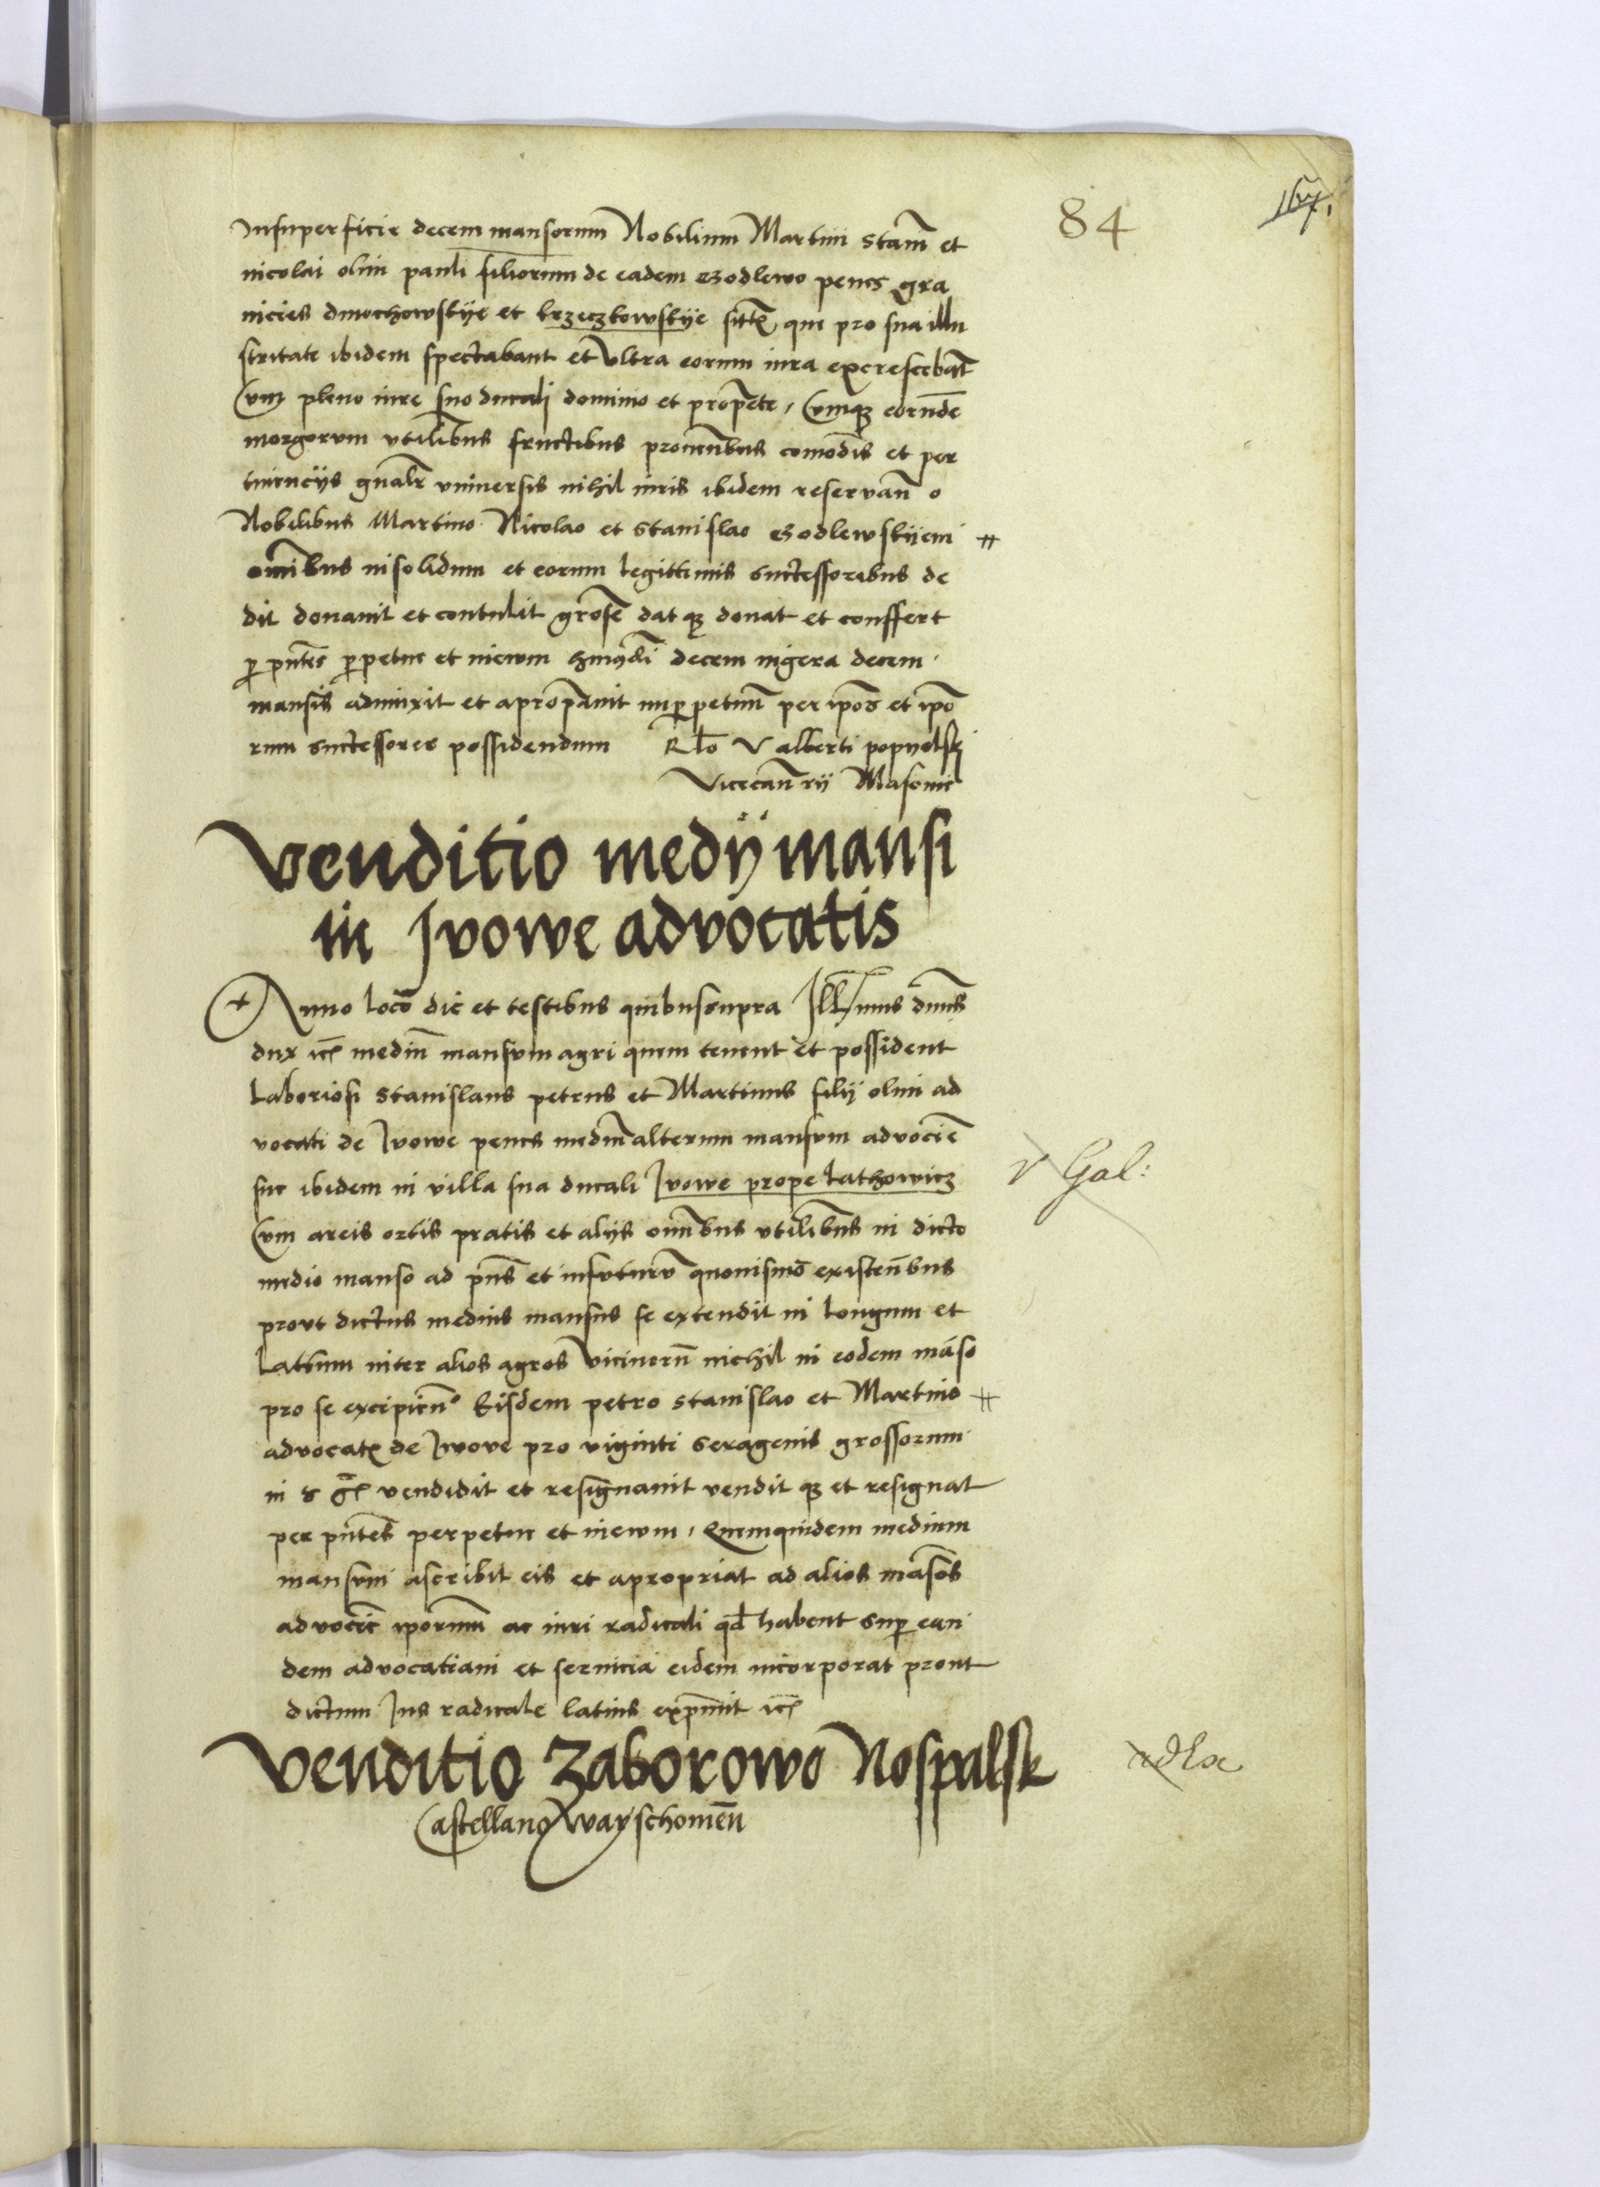 84
Insuperficie decem mansorum Nobilium Martini Stanĩ et
nicolai olim pauli filiorum de eadem Godlewo penes gra
nicies dmochowskye et brzeczkowskye qui pro sua illu
stritate ibidem spectabant et Ultra eorum iura excrescebãt
Cum pleno iure suo ducali dominio et propẽte, Cumqꝫ eorundẽ
morgorum utilibus fructibus provenbus comodis et per
tinencijs gñalr universis nihil iuris ibidem reservañ o
Nobilibus Martino Nicolao et Stanislao Godlewskyem
omibus insolidum et eorum legittimis successoribus de
dit donavit et contulit dat qꝫ donat et conffert
ꝑ pñtes ꝑpetue et inewm decem iugera decem
mansis adiunxit et apropãvit inꝑpetuũ per ipõs et ipõ
rum successores possidendum Rlo Valberti popyelsk
Vicecañrij Masovie
Venditio medij mansi
in Jvowe advocatis
Anno loco die et testibus quibus supra Illmus dnus
dux mediũ mansum agri quem tenent et possident
Laboriosi Stanislaus petrus et Martinus filij olim ad
vocati de Jvowe penes mediũ alterum mansum advociẽ
sue ibidem in villa sua ducali Jvowe prope Lathowicz
V Gal:
Cum areis ortis pratis et alijs omibus utilibus in dicto
medio manso ad pñs et infuturũ quovismõ existenbus
prout dictus medius mansus se extendit in longum et
Latum inter alios agros Vicinorũ nichil in eodem mãso
pro se excipieñ Eisdem petro Stanislao et Martino
advocatis de Jwove pro viginti sexagenis grossorum
in vendidit et resignavit vendit qꝫ et resignat
per pñtes perpetue et inewm, Quemquidem medium
mansum ascribit eis et apropriat ad alios mãsos
advocie ipõrum ac iuri radicali qd habent supꝑ ean
dem advocatiam et servicia eidem incorporat prout
dictum Jus radicale latius exprimit
Venditio Zaborowo Nospalsk
Castellano Wayschomeñ